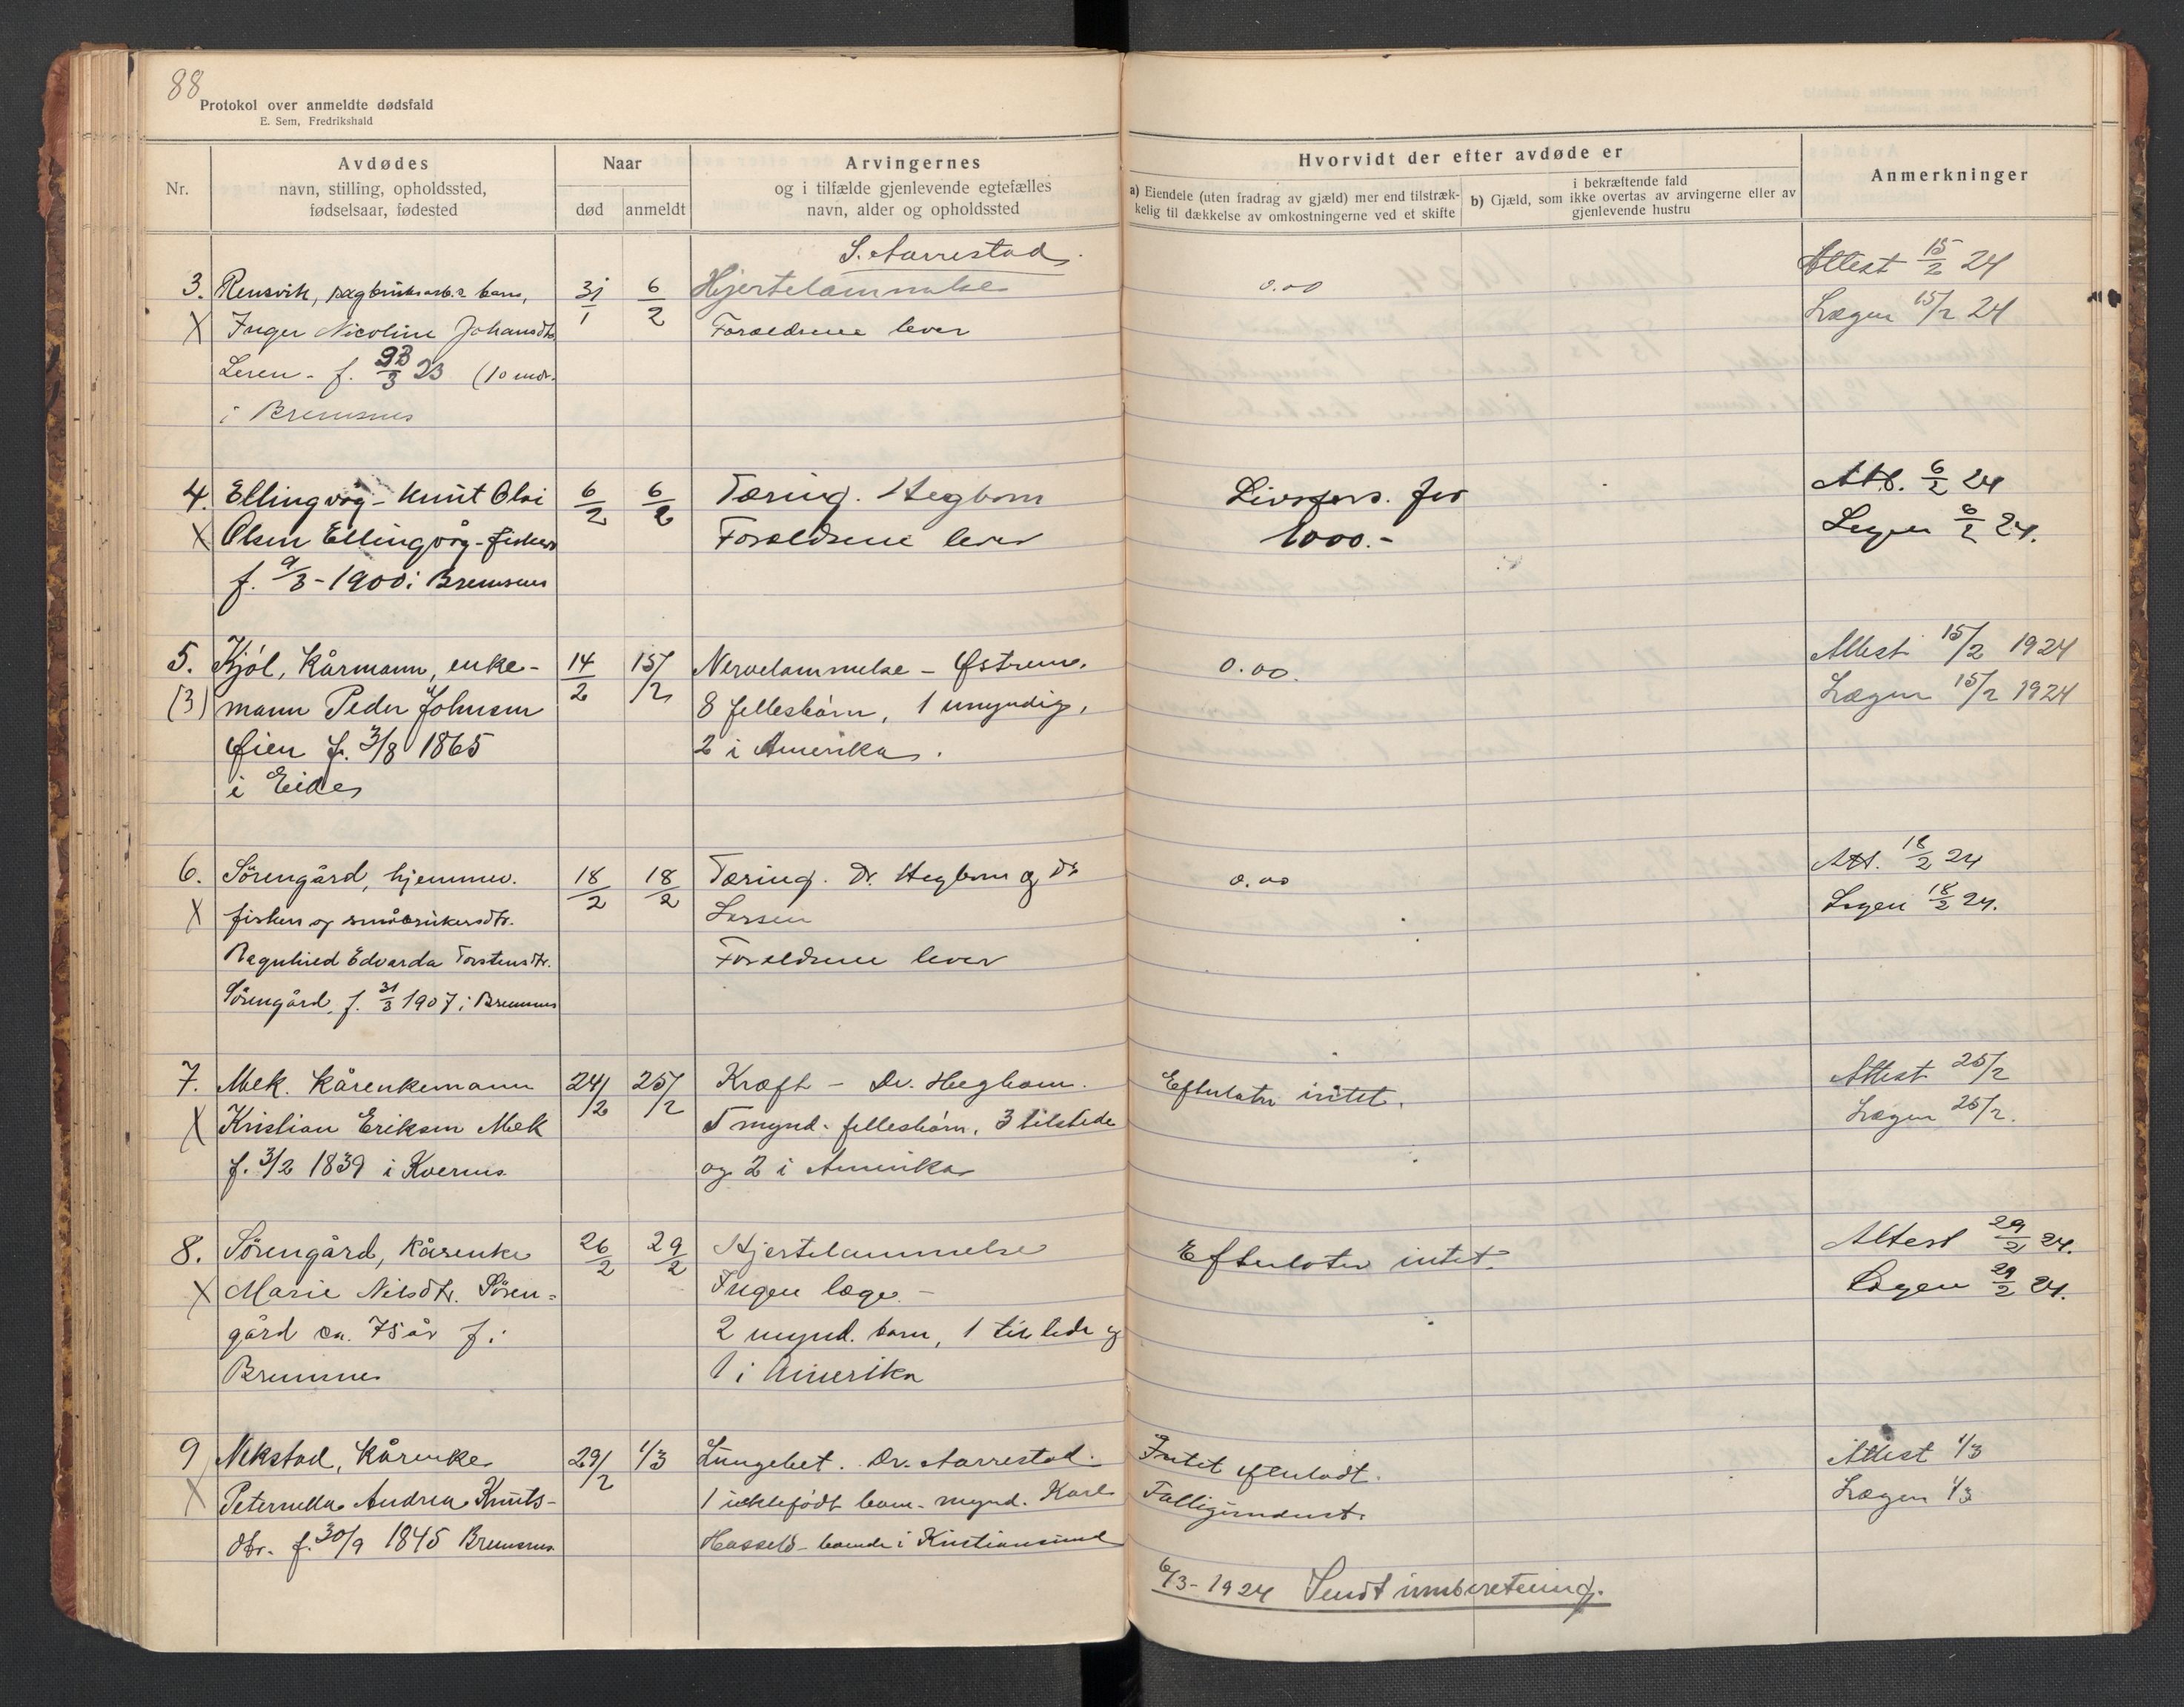 88
Protokol over anmeldte dødsfald
E. Sem, Fredrikshald
Nr.
Avdødes
navn, stilling, opholdssted,
fødselsaar, fødested
Naar
død
anmeldt
Arvingernes
og i tilfælde gjenlevende egtefælles
navn, alder og opholdssted
Hvorvidt der efter avdøde er
a) Eiendele (uten fradrag av gjæld) mer end tilstræk-
kelig til dækkelse av omkostningerne ved et skifte
i bekræftende fald
b) Gjæld, som ikke overtas av arvingerne eller av
gjenlevende hustru
Anmerkninger
S. Aarrestad.
3. Rensvik, barn, 31/1 6/2 Hjertelammelse 0.00 Attest 15/2 24
X Inger Nicoline Johansdtr. Foreldrene lever Lægen 15/2 24
Leren - f. 23 (10 mdr.
i Bremsnes
4. Ellingvåg - Knut Olai 6/2 6/2 Tæring. Hegbom Livsfors. for Att. 6/2 24
X Olsen Ellingvåg - fisker Foreldrene lever 1000.- Legen 6/2 24.
f. 9/3 - 1900 i Bremsnes
5. Kjöl, Kårmann, enke- 14/2 15/2 Nervelammelse - Østrem. 0.00. Attest 15/2 1924
(3) mann Peder Johnsen 8 fellesbörn, 1 umyndig, Lægen 15/2 1924
Øien f. 3/8 1865 2 i Amerika.
i Eide
6. Sörengård, hjemmev. 18/2 18/2 Tæring. Dr. Hegbom og Dr. 0.00 Att. 18/2 24
X fisker og småbrukersdtr. Larsen Legen 18/2 24.
Ragnhild Edvarda Torstensdtr. Foreldrene lever
Sörengård, f. 31/3 1907 i Bremsnes
7. Mek. Kårenkemann 24/2 25/2 Kræft - Dr. Hegbom. Efterlater intet. Attest 25/2
X Kristian Eriksen Mek 5 mynd. fellesbörn, 3 tilstede Lægen 25/2.
f. 3/2 1839 i Kvernes og 2 i Amerika
8. Sörengård, Kårenke 26/2 29/2 Hjertelammelse Efterlater intet. Attest 29/2 24.
X Marie Nilsdtr. Sören= Ingen læge. - Legen 29/2 24.
gård ca. 75 år f. i 2 mynd. barn, 1 tilstede og
Bremsnes 1 i Amerika
9 Nekstad, Kårenke 29/2 1/3 Lungebet. Dr. Aarrestad. Intet efterladt. Attest 1/3
X Peternella Andrea Knuts- 1 uektefödt barn - mynd. Karl Lægen 1/3
dtr. f. 30/9 1845 Bremsnes Hasseld - boende i Kristiansund
6/3 - 1924 Sendt innberetning.